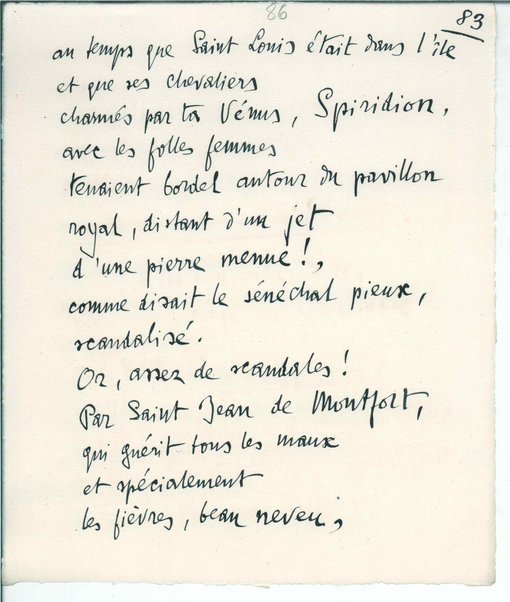 86
83
au temps que Saint Louis était dans l'île
et que ses chevaliers
charmés par ta Vénus, Spiridion,
avec les folles femmes
tenaient bordel autour du pavillon
royal, distant d'un jet
d'une pierre menue !,
comme disait le sénéchal pieux,
scandalisé.
Or, assez de scandales !
Par Saint Jean de Montfort,
qui guérit tous les maux
et spécialement
les fièvres, beau neveu,